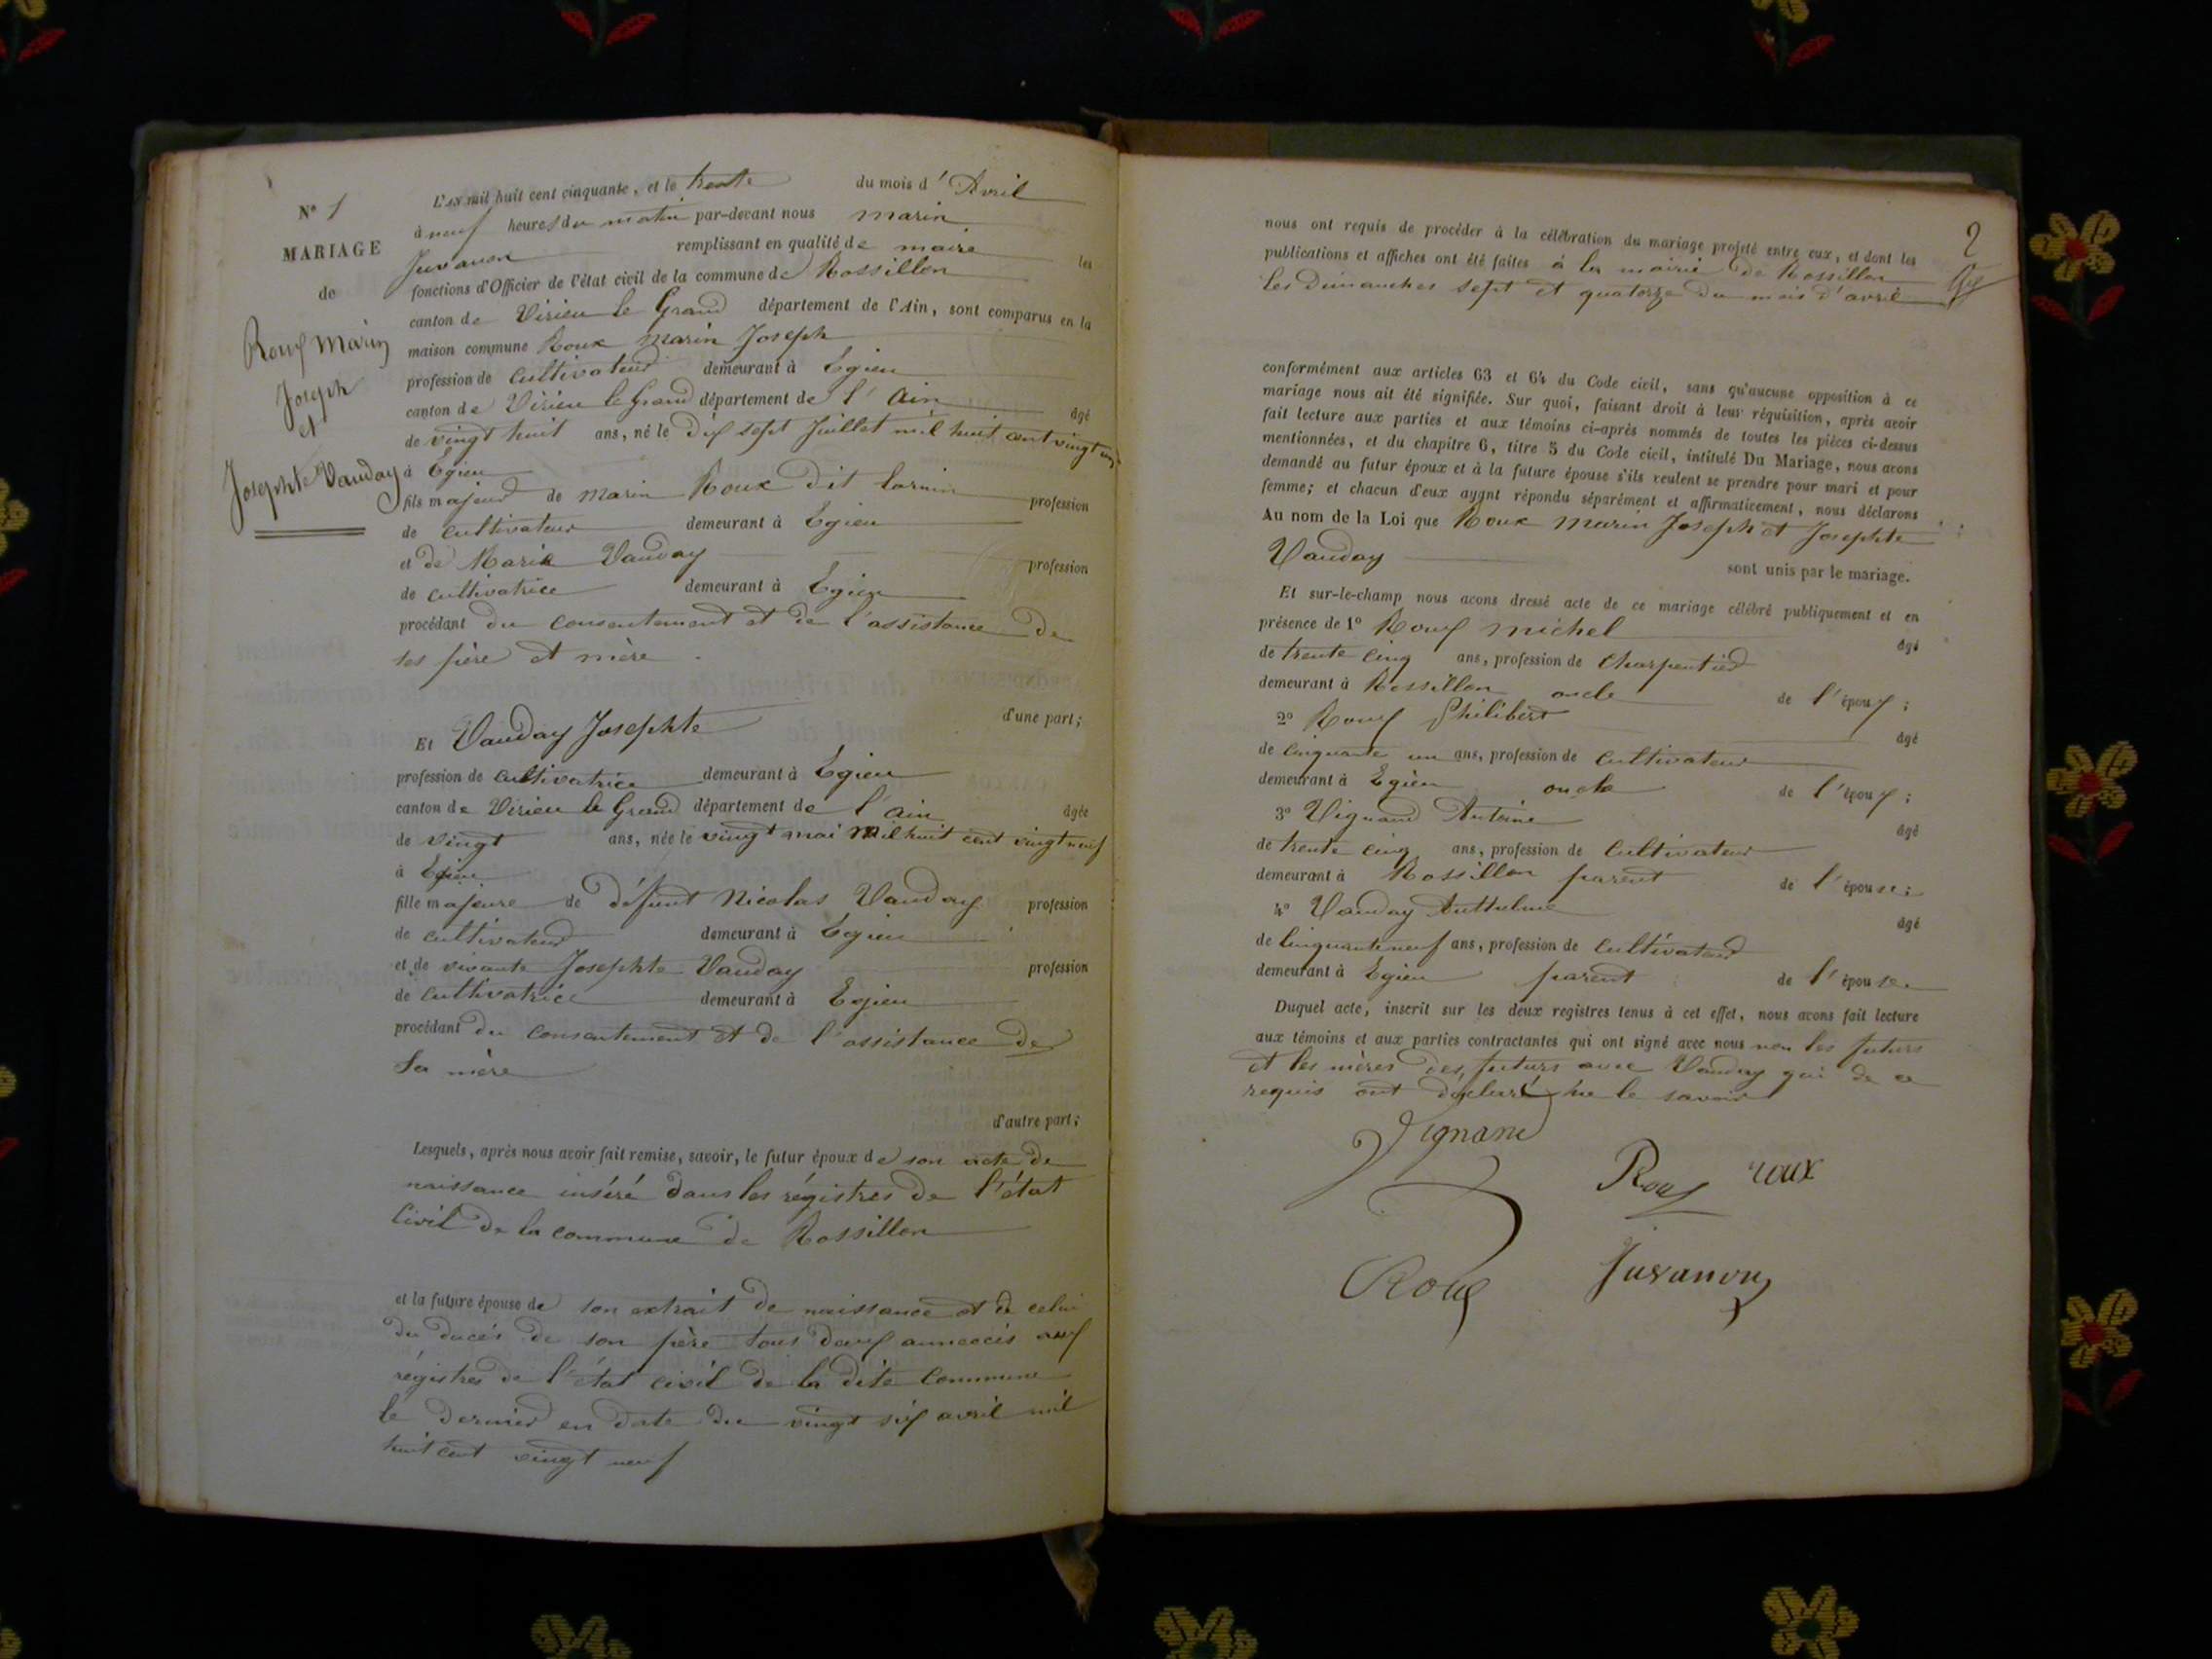 N° 1
MARIAGE
de
Roux Marin
Joseph
et
Josephte Vauday
L'AN mil huit cent cinquante, et le trente du mois d'Avril
à neuf heures du matin par-devant nous marin
Juvanon remplissant en qualité de maire les
fonctions d'Officier de l'état civil de la commune de Rossillon
canton de Virieu le Grand département de l'Ain, sont comparus en la
maison commune Roux marin Joseph
profession de cultivateur demeurant à Egieu
canton de Virieu le Grand département de l'Ain âgé
de vingt huit ans, né le dix sept Juillet mil huit cent vingt un
à Egieu
fils majeur de marin Roux dit profession
de cultivateur demeurant à Egieu
et de Marie Vauday profession
de cultivatrice demeurant à Egieu
procédant du consentement et de l'assistance de
ses père et mère.
d'une part;
Et Vauday Josephte
profession de cultivatrice demeurant à Egieu
canton de Virieu le Grand département de l'ain âgée
de vingt ans, née le vingt mai mil huit cent vingt neuf
à Egieu
fille majeure de défunt Nicolas Vauday profession
de cultivateur demeurant à Egieu
et de vivante Josephte Vauday profession
de cultivatrice demeurant à Egieu
procédant du consentement et de l'assistance de
Sa mère
d'autre part;
Lesquels, après nous avoir fait remise, savoir, le futur époux de son acte de
naissance inséré dans les régistres de l'état
Civil de la commune de Rossillon
et la future épouse de son extrait de naissance et de celui
du décés de son père tous deux aux
régistres de l'état civil de la dite Commune
le dernier en date du vingt six avril mil
huit cent vingt neuf
2
nous ont requis de procéder à la célébration du mariage projeté entre eux, et dont les
publications et affiches ont été faites à la mairie de Rossillon
les dimanches sept et quatorze du mois d'avril
conformément aux articles 63 et 64 du Code civil, sans qu'aucune opposition à ce
mariage nous ait été signifiée. Sur quoi, faisant droit à leur réquisition, après avoir
fait lecture aux parties et aux témoins ci-après nommés de toutes les pièces ci-dessus
mentionnées, et du chapitre 6, titre 5 du Code civil, intitulé Du Mariage, nous avons
demandé au futur époux et à la future épouse s'ils veulent se prendre pour mari et pour
femme; et chacun d'eux ayant répondu séparément et affirmativement, nous déclarons
Au nom de la Loi que Roux marin Joseph et Josephte
Vauday
sont unis par le mariage.
Et sur-le-champ nous avons dressé acte de ce mariage célébré publiquement et en
présence de 1° Roux michel âgé
de trente cinq ans, profession de Charpentier
demeurant à Rossillon oncle de l'époux;
2° Roux Philibert âgé
de cinquante un ans, profession de cultivateur
demeurant à Egieu oncle de l'époux;
3° Vignand Antoine âgé
de trente cinq ans, profession de Cultivateur
demeurant à Rossillon parent de l'épouse;
4° Vauday Anthelme âgé
de Cinquante neuf ans, profession de Cultivateur
demeurant à Egieu parent de l'épouse.
Duquel acte, inscrit sur les deux registres tenus à cet effet, nous avons fait lecture
aux témoins et aux parties contractantes qui ont signé avec nous non les futurs
et les mères des futurs avec Vauday qui de ce
requis ont déclaré ne le savoir
Vignand
Roux roux
Roux Juvanon